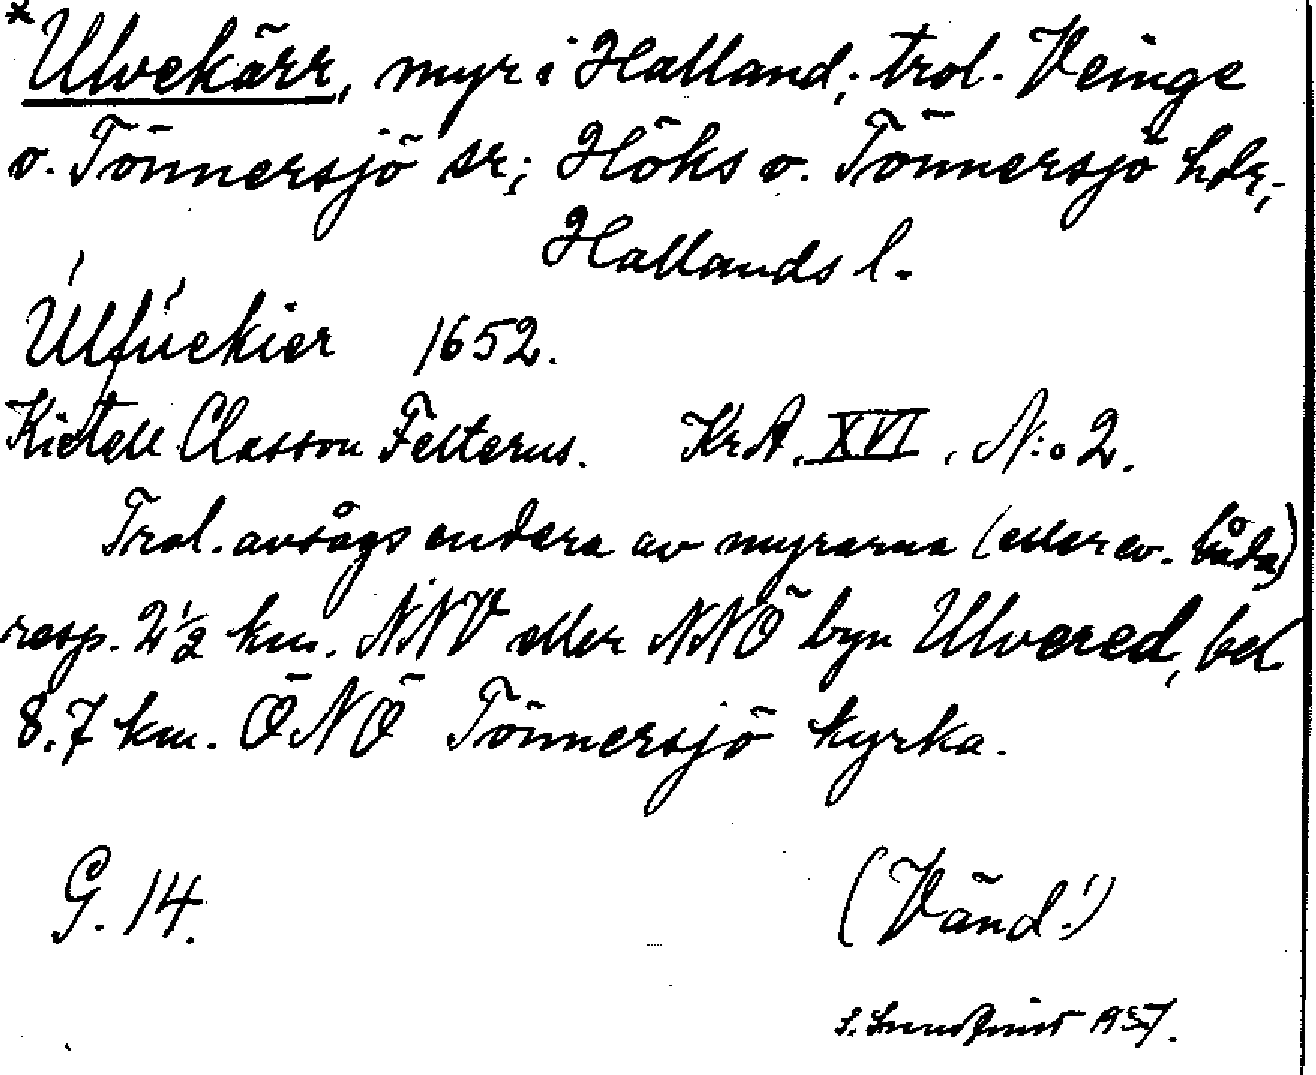 *Ulvekärr, myr i Halland; trol. Veinge
o. Tönnersjö sr; Höks o. Tönnersjö hdr,
Hallands l.
Úlfúekier 1652.
Kietell Classon Felterus. KrA. XVI, N:o 2.
Trol. avsågs endera av myrarna (eller ev. båda)
resp. 2 1/2 km. NNV eller NNÖ byn Ulvered, bel
8.7 km. ÖNÖ Tönnersjö kyrka.
G. 14. (Vänd!)
1957.